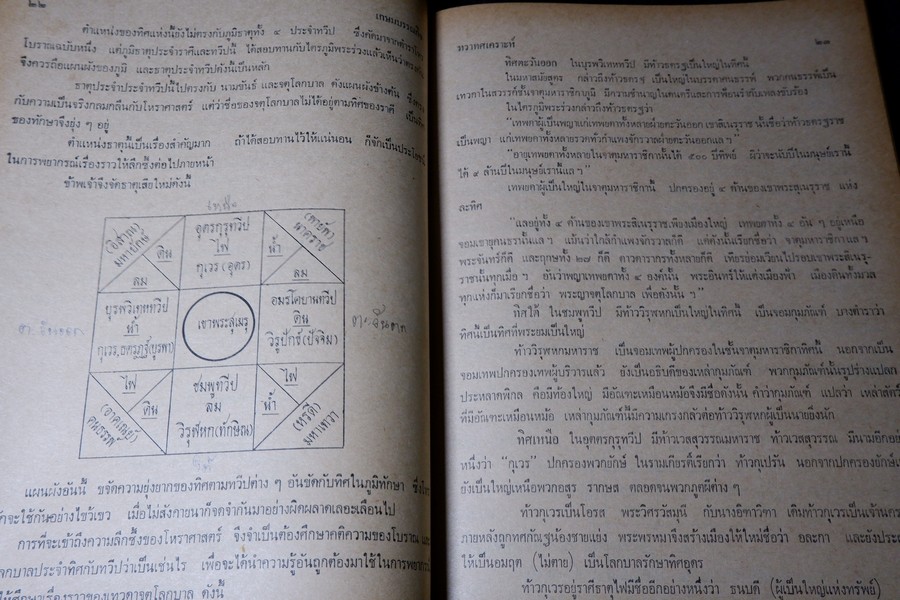 ๒๒
เกษมบรรณกิจ
ตำแหน่งของทิศแห่งนี้ยังไม่ตรงกับภูมิธาตุทั้ง ๔ ประจำทวีป ซึ่งคัดมาจากตำรา
โบราณฉบับหนึ่ง แต่ภูมิธาตุประจำราศีและทวีปนี้ ได้สอบทานกับไตรภูมิพระร่วงแล้วเห็นว่า
จึงควรถือแผนผังของภูมิ และธาตุประจำทวีปดังนี้เป็นหลัก
ธาตุประจำประจำทวีปไปตรงกับ นามขันธ์ และจตุโลกบาล ดังแผนผังข้างต้น ซึ่งตรง
กับความเป็นจริงกลมกลืนกับโหราศาสตร์ แต่ว่าชื่อของจตุโลกบาลไม่ได้อยู่ตามทิศของราศี เป็น
ของทักษาจึงยุ่ง ๆ อยู่
ตำแหน่งธาตุนี้เป็นเรื่องสำคัญมาก ถ้าได้สอบทานไว้ให้แน่นอน ก็จักเป็นประโยชน์
ในการพยากรณ์เรื่องราวให้ลึกซึ้งต่อไปภายหน้า
ข้าพเจ้าจึงจัดธาตุเสียใหม่ดังนี้
เหนือ
(อีสาณ)
มหายักษ์
ดิน
ลม
อุตรกุรุทวีป
ไฟ
กุเวร (อุตร)
(พายัพ)
นาคราช
น้ำ
ลม
ตะวันออก
บุรพวิเทหทวีป
น้ำ
กุเวร,ธตรฎฐ์(บูรพา)
เขาพระสุเมรุ
อมรโคยานทวีป
ดิน
วิรูปักข์ (ปัจจิม)
ตะวันตก
ไฟ
ดิน
(อาคเนย์)
คนธรรพ์
ชมพูทวีป
ลม
วิรุฬหก(ทักษิณ)
ไฟ
น้ำ
(หรดี)
มหาเทวา
ใต้
แผนผังอันนี้ ขจัดความยุ่งยากของทิศตามทวีปต่าง ๆ อันขัดกับทิศในภูมิทักษา ซึ่ง
จะใช้กันอย่างไขว้เขว เมื่อไม่สังคายนาก็จดจำกันมาอย่างผิดพลาดเลอะเลือนไป
การที่จะเข้าถึงความลึกซึ้งของโหราศาสตร์ จึงจำเป็นต้องศึกษาคติความของโบราณ และ
โลกบาลประจำทิศกับทวีปว่าเป็นเช่นไร เพื่อจะได้นำความรู้อันถูกต้องมาใช้ในการพยากรณ์
ให้ศึกษาเรื่องราวของเทวดาจตุโลกบาล ดังนี้
ทวาทศเคราะห์
๒๓
ทิศตะวันออก ในบุรพวิเทหทวีป มีท้าวธตรฐเป็นใหญ่ในทิศนี้
ในมหาสมัยสูตร กล่าวถึงท้าวธตรฐ เป็นใหญ่ในบรรดาคนธรรพ์ พวกคนธรรพ์เป็น
เทวกาในสวรรค์ชั้นจาตุมหาราชิกาภูมิ มีความชำนาญในดนตรีและการฟ้อนรำกับเพลงขับร้อง
ในไตรภูมิพระร่วงกล่าวถึงท้าวธตรฐว่า
"เทพยผู้เป็นพญาแก่เทพยดาทั้งหลายฝ่ายตะวันออก เขาสิเนรุราช นั้นชื่อว่าท้าวธตรฐราช
เป็นพญา แก่เทพยดาทั้งหลายรวดทั่วกำแพงจักรวาฬฝ่ายตะวันออกแล ฯ"
"อายุเทพยดาทั้งหลายในจาตุมหาราชิกานั้นได้ ๕๐๐ ปีทิพย์ ผิว่าจะนับปีในมนุษย์เรานี้
ได้ ๙ ล้านปีในมนุษย์เรานี้แล ฯ"
เทพยดาผู้เป็นใหญ่ในจาตุมหาราชิกานี้ ปกครองอยู่ ๔ ด้านของเขาพระสุเนรุราช แห่ง
ละทิศ
"แลอยู่ทั้ง ๔ ด้านของเขาพระสิเนรุราชเพียงเมืองใหญ่ เทพยดาทั้ง ๔ อัน ๆ อยู่เหนือ
จอมเขายุคนธรนั้นแล ฯ แม้นว่าใกล้กำแพงจักรวาลก็ดี แต่ดังนั้นเรียกชื่อว่า จาตุมหาราชิกาแล ฯ
พระจันทร์ก็ดี และฤกษ์ทั้ง ๒๗ ก็ดี ดาวดารากรทั้งหลายก็ดี เทียรย่อมเวียนไปรอบเขาพระสิเนรุ-
ราชนั้นทุกเมื่อ ฯ อันว่าพญาเทพยดาทั้ง ๔ องค์นั้น พระอินทร์ให้แต่งเมืองฟ้า เมืองดินทั้งมวล
ทุกแห่งก็มาเรียกชื่อว่า พระญาจตุโลกบาล เพื่อดังนั้น ฯ"
ทิศใต้ ในชมพูทวีป มีท้าววิรุฬหกเป็นใหญ่ในทิศนี้ เป็นจอมกุมภัณฑ์ บางตำราว่า
ทิศนี้เป็นทิศที่พระยมเป็นใหญ่
ท้าววิรุฬหกมหาราช เป็นจอมเทพผู้ปกครองในชั้นจาตุมหาราชิกาทิศนี้ นอกจากเป็น
จอมเทพปกครองเทพผู้บริวารแล้ว ยังเป็นอธิบดีของเหล่ากุมภัณฑ์ พวกกุมภัณฑ์นั้นรูปร่างแปลก
ประหลาดพิลึก คือมีท้องใหญ่ มีอัณฑะเหมือนหม้อจึงมีชื่อดังนั้น คำว่ากุมภัณฑ์ แปลว่า เหล่าสัตว์
ที่มีอัณฑะเหมือนหม้อ เหล่ากุมภัณฑ์นี้มีความเกรงกลัวต่อท้าววิรุฬหกผู้เป็นนายยิ่งนัก
ทิศเหนือ ในอุตตรกุรุทวีป มีท้าวเวสสุวรรณมหาราช ท้าวเวสสุวรรณ มีนามอีกอย่าง
หนึ่งว่า "กุเวร" ปกครองพวกยักษ์ ในรามเกียรติ์เรียกว่า ท้าวกุเปรัน นอกจากปกครองยักษ์แล้ว
ยังเป็นใหญ่เหนือพวกอสูร รากษส ตลอดจนพวกภูตผีต่าง ๆ
ท้าวกุเวรเป็นโอรส พระวิศรวัสมุนี กับนางอิฑาวิฑา เดิมท้าวกุเวรเป็นเจ้านคร
ภายหลังถูกทศกัณฐ์น้องชายแย่ง พระพรหมาจึงสร้างเมืองให้ใหม่ชื่อว่า อละกา และยังประสาท
ให้เป็นอมฤต (ไม่ตาย) เป็นโลกบาลรักษาทิศอุดร
ท้าวกุเวรอยู่ราศีธาตุไฟมีชื่ออีกอย่างหนึ่งว่า ธนบดี (ผู้เป็นใหญ่แห่งทรัพย์)